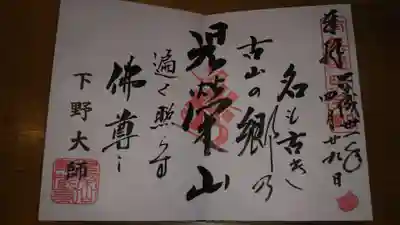 奉拝
平成廿一年
四月廿九日
名も古き
古山の郷乃
光榮山
遍く照らす
佛尊し
下野大師